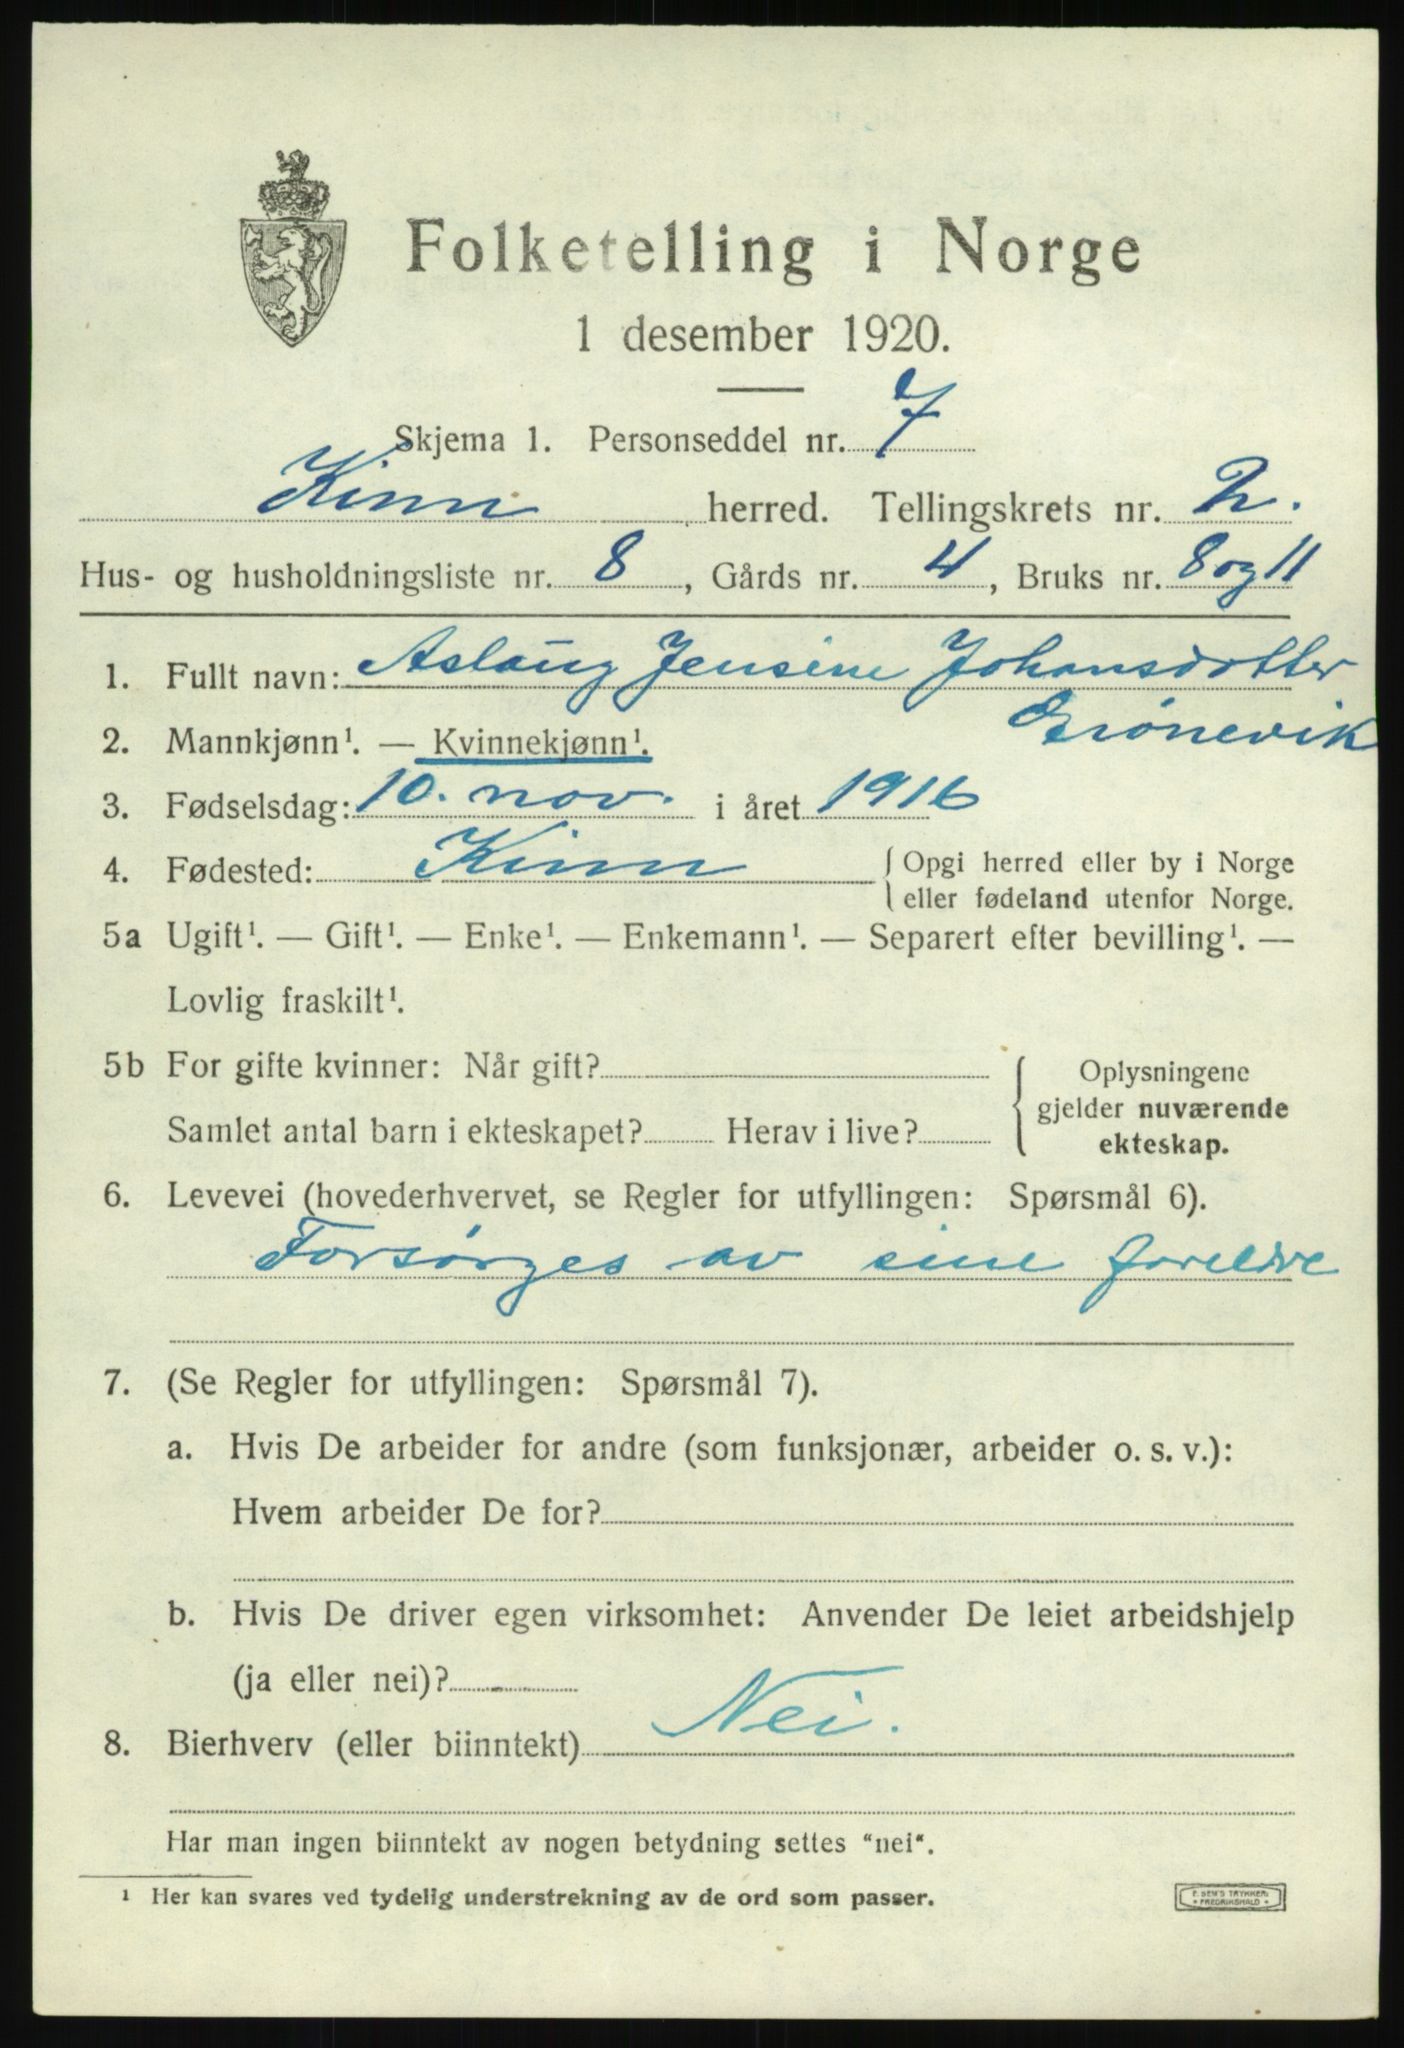 Folketelling i Norge
1 desember 1920.
Skjema 1. Personseddel nr. 7
Kinn herred. Tellingskrets nr. 2.
Hus- og husholdningsliste nr. 8, Gårds nr. 4, Bruks nr. 8 og 11
1. Fullt navn: Aslaug Jensine Johansdotter
Grönevik
2. Mannkjønn¹. — Kvinnekjønn¹.
3. Fødselsdag: 10. nov. i året 1916
4. Fødested: Kinn { Opgi herred eller by i Norge
eller fødeland utenfor Norge.
5a Ugift¹. — Gift¹. — Enke¹. — Enkemann¹. — Separert efter bevilling¹. —
Lovlig fraskilt¹.
5b For gifte kvinner: Når gift?
Samlet antal barn i ekteskapet? Herav i live?
Oplysningene
gjelder nuværende
ekteskap.
6. Levevei (hovederhvervet, se Regler for utfyllingen: Spørsmål 6).
Forsörges av sine foreldre
7. (Se Regler for utfyllingen: Spørsmål 7).
a. Hvis De arbeider for andre (som funksjonær, arbeider o. s. v.):
Hvem arbeider De for?
b. Hvis De driver egen virksomhet: Anvender De leiet arbeidshjelp
(ja eller nei)?
8. Bierhverv (eller biinntekt) Nei.
Har man ingen biinntekt av nogen betydning settes "nei".
¹ Her kan svares ved tydelig understrekning av de ord som passer.
E. SEM'S TRYKKERI
• FREDRIKSHALD •